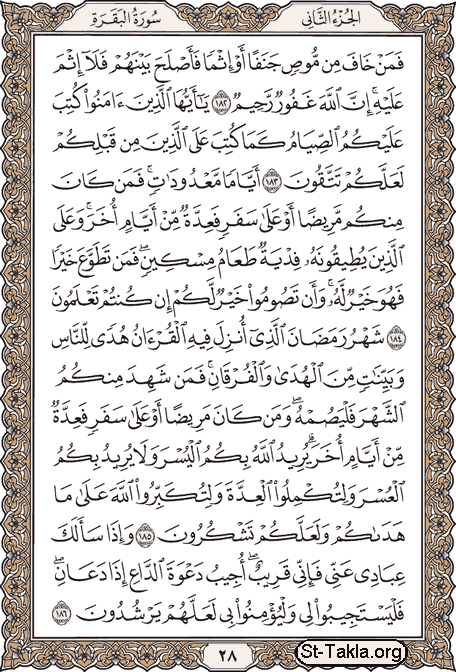 الجزء الثاني سورة البقرة
فَمَنْ خَافَ مِن مُّوصٍ جَنَفًا أَوْ إِثْمًا فَأَصْلَحَ بَيْنَهُمْ فَلَآ إِثْمَ
عَلَيْهِ ۚ إِنَّ ٱللَّهَ غَفُورٌ رَّحِيمٌ ١٨٢ يَـٰٓأَيُّهَا ٱلَّذِينَ ءَامَنُوا۟ كُتِبَ
عَلَيْكُمُ ٱلصِّيَامُ كَمَا كُتِبَ عَلَى ٱلَّذِينَ مِن قَبْلِكُمْ
لَعَلَّكُمْ تَتَّقُونَ ١٨٣ أَيَّامًا مَّعْدُودَٰتٍ ۚ فَمَن كَانَ
مِنكُم مَّرِيضًا أَوْ عَلَىٰ سَفَرٍ فَعِدَّةٌ مِّنْ أَيَّامٍ أُخَرَ ۚ وَعَلَى
ٱلَّذِينَ يُطِيقُونَهُۥ فِدْيَةٌ طَعَامُ مِسْكِينٍ ۖ فَمَن تَطَوَّعَ خَيْرًا
فَهُوَ خَيْرٌ لَّهُۥ ۚ وَأَن تَصُومُوا۟ خَيْرٌ لَّكُمْ ۖ إِن كُنتُمْ تَعْلَمُونَ
١٨٤ شَهْرُ رَمَضَانَ ٱلَّذِىٓ أُنزِلَ فِيهِ ٱلْقُرْءَانُ هُدًى لِّلنَّاسِ
وَبَيِّنَـٰتٍ مِّنَ ٱلْهُدَىٰ وَٱلْفُرْقَانِ ۚ فَمَن شَهِدَ مِنكُمُ
ٱلشَّهْرَ فَلْيَصُمْهُ ۖ وَمَن كَانَ مَرِيضًا أَوْ عَلَىٰ سَفَرٍ فَعِدَّةٌ
مِّنْ أَيَّامٍ أُخَرَ ۗ يُرِيدُ ٱللَّهُ بِكُمُ ٱلْيُسْرَ وَلَا يُرِيدُ بِكُمُ
ٱلْعُسْرَ وَلِتُكْمِلُوا۟ ٱلْعِدَّةَ وَلِتُكَبِّرُوا۟ ٱللَّهَ عَلَىٰ مَا
هَدَىٰكُمْ وَلَعَلَّكُمْ تَشْكُرُونَ ١٨٥ وَإِذَا سَأَلَكَ
عِبَادِى عَنِّى فَإِنِّى قَرِيبٌ ۖ أُجِيبُ دَعْوَةَ ٱلدَّاعِ إِذَا دَعَانِ ۖ
فَلْيَسْتَجِيبُوا۟ لِى وَلْيُؤْمِنُوا۟ بِى لَعَلَّهُمْ يَرْشُدُونَ ١٨٦
٢٨
St-Takla.org